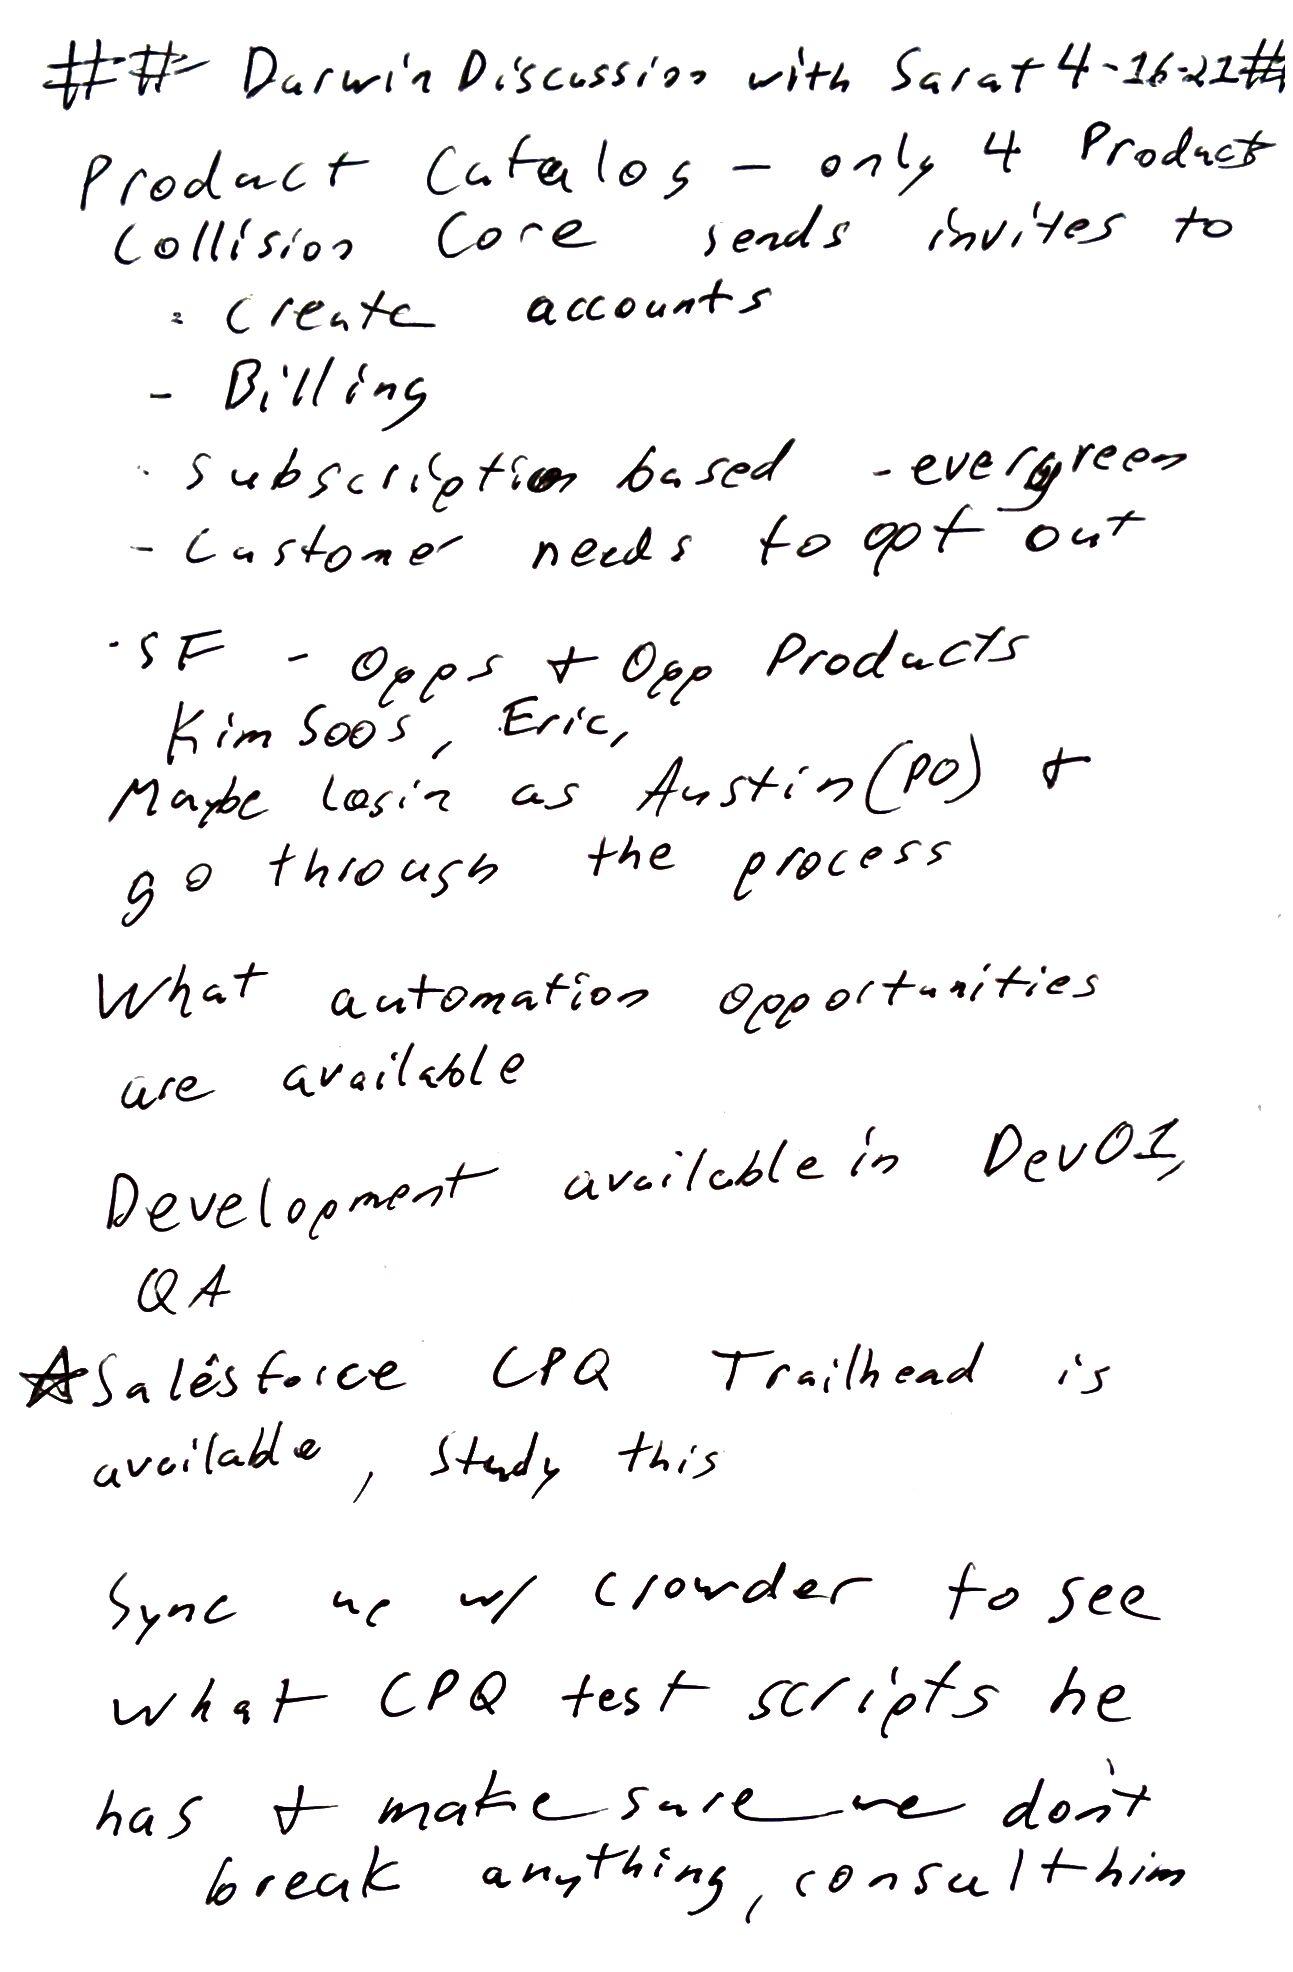 ## Darwin Discussion with Sarat 4-16-21#
Product Catalog - only 4 Products
Collision Core sends invites to
- Create accounts
- Billing
- Subscription based - evergreen
- Customer needs to opt out
- SF - Opps + Opp Products
Kim Soos, Eric,
Maybe login as Austin (PO) +
go through the process
What automation opportunities
are available
Development available in Dev01,
QA
☆ Salesforce CPQ Trailhead is
available, study this
Sync up w/ Crowder to see
what CPQ test scripts he
has + make sure we don't
break anything, consult him